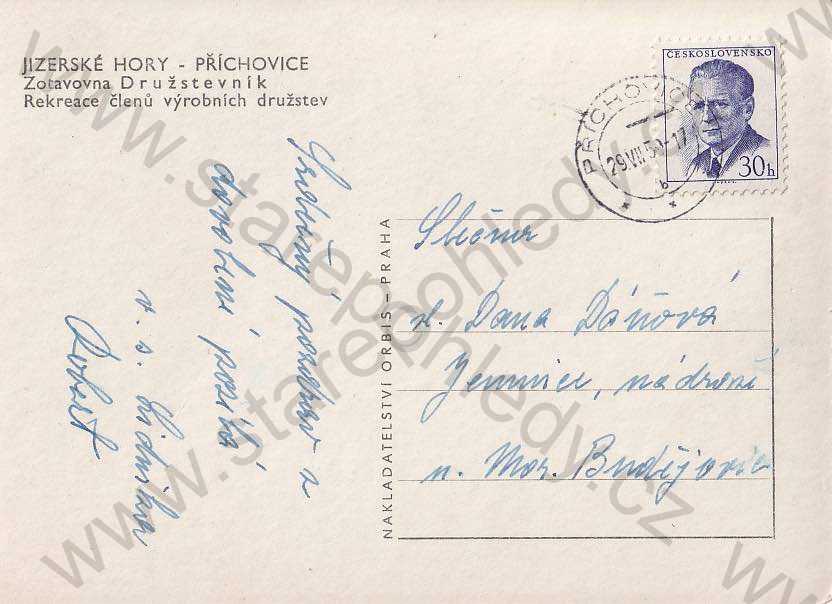 JIZERSKÉ HORY - PŘÍCHOVICE
Zotavovna Družstevník
Rekreace členů výrobních družstev
ČESKOSLOVENSKO
30h
PŘÍCHOVICE
29.VII.59-17
b
Srdečný pozdrav z
dovolené posílá
Robert
NAKLADATELSTVÍ ORBIS - PRAHA
Slečna
sl. Dana Dáňová
Jemnice, nádraží
u Mor. Budějovic
www.starepohledy.cz